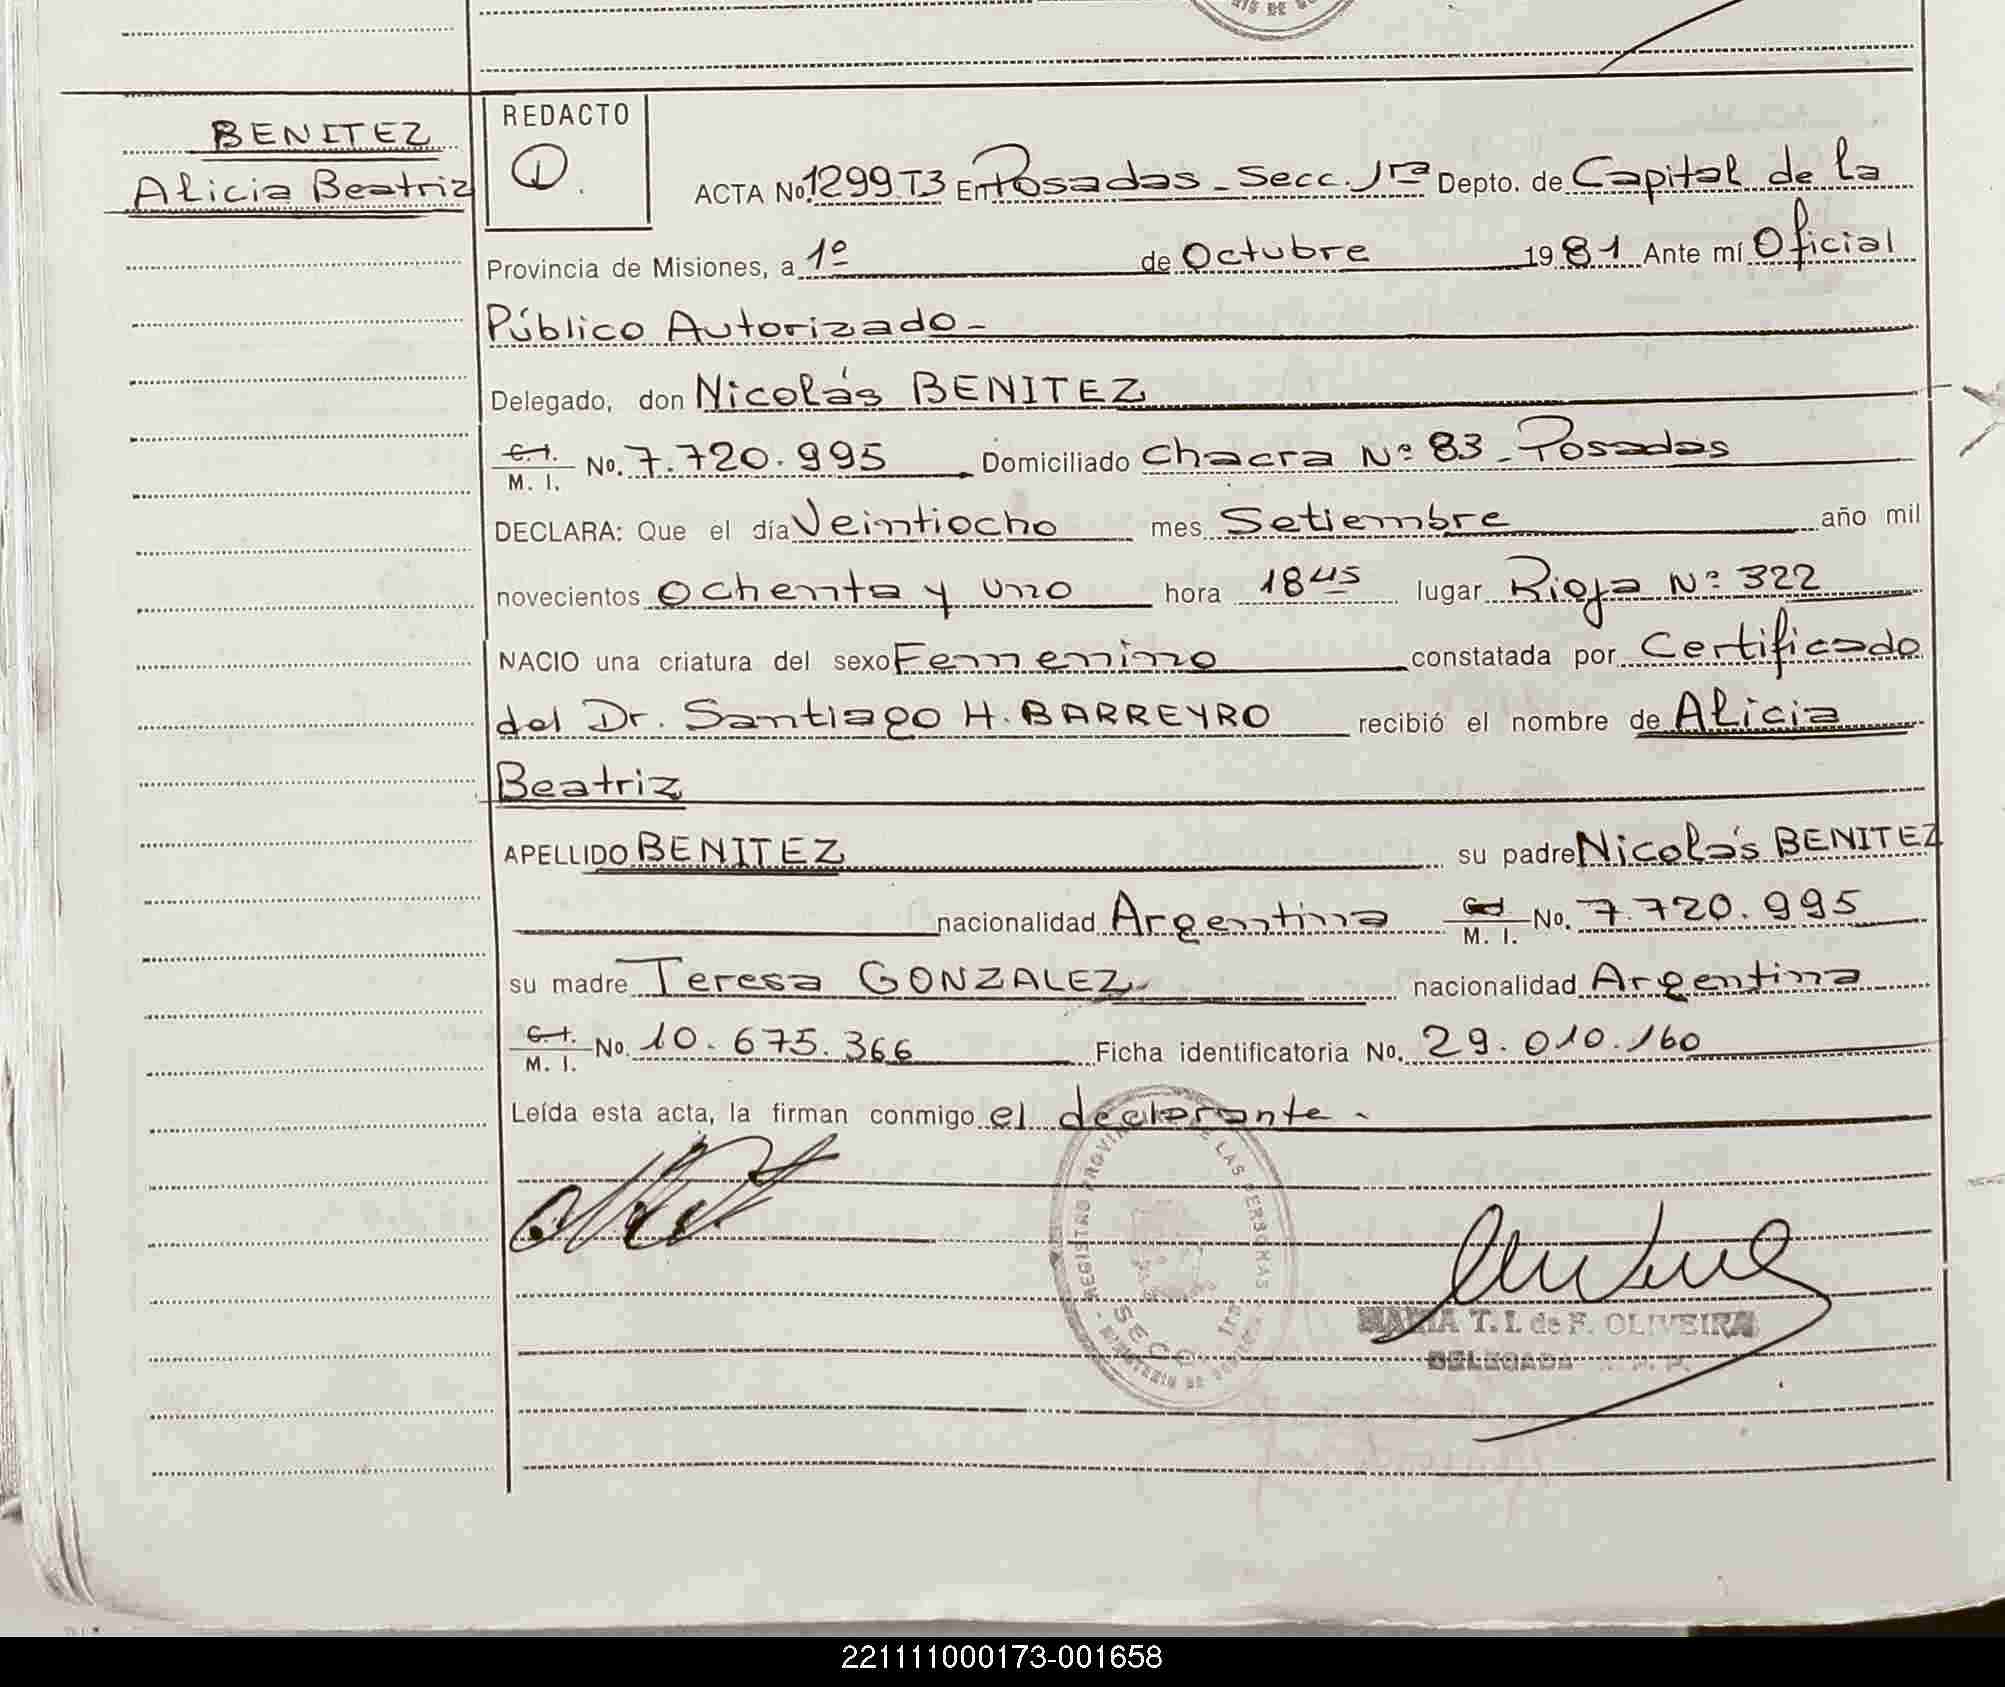 BENITEZ
Alicia Beatriz
REDACTO
ACTA No. 1299 T3 En Posadas - Secc. 1ra Depto. de Capital de la
Provincia de Misiones, a 1º de Octubre 1981 Ante mí Oficial
Público Autorizado -
Delegado, don Nicolás BENITEZ
C. I. M. I. No. 7.720.995 Domiciliado Chacra Nº 83 - Posadas
DECLARA: Que el día Veintiocho mes Setiembre año mil
novecientos Ochenta y uno hora 18 45 lugar Rioja Nº 322
NACIO una criatura del sexo Femenino constatada por Certificado
del Dr. Santiago H. BARREYRO recibió el nombre de Alicia
Beatriz
APELLIDO BENITEZ su padre Nicolás BENITEZ
nacionalidad Argentina M. I. No. 7.720.995
su madre Teresa GONZALEZ nacionalidad Argentina
C. I. M. I. No. 10.675.366 Ficha identificatoria No. 29.010.160
Leída esta acta, la firman conmigo el declarante.
REGISTRO DE LAS PERSONAS
SECC. 1ra
MARIA T. I. de F. OLIVEIRA
DELEGADA
221111000173-001658